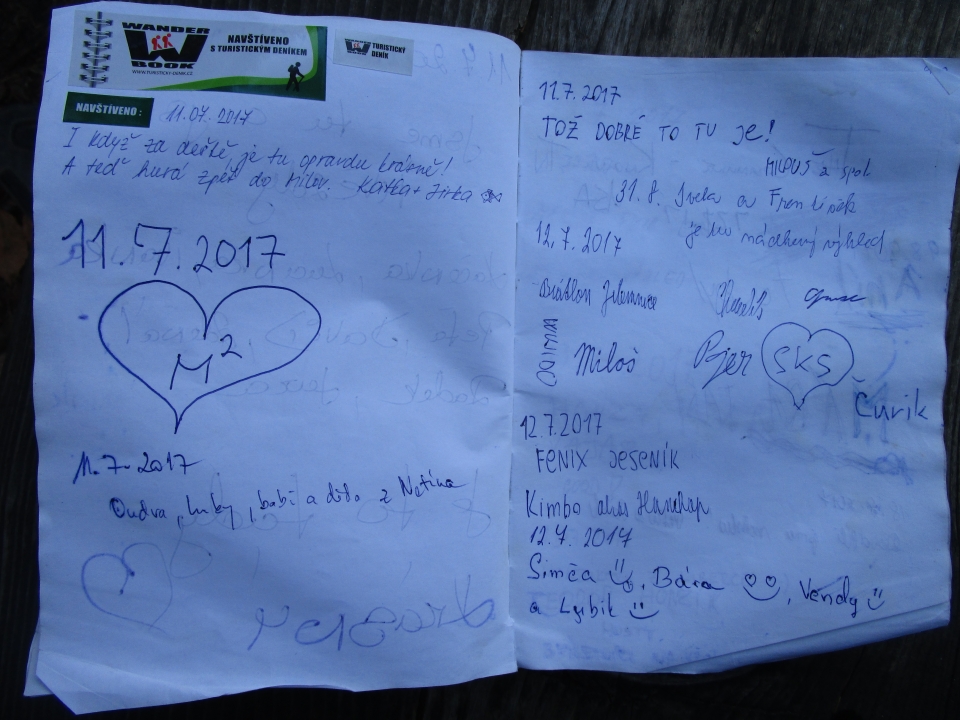 WANDER
BOOK
WWW.TURISTICKY-DENIK.CZ
NAVŠTÍVENO
S TURISTICKÝM DENÍKEM
TURISTICKÝ
DENÍK
NAVŠTÍVENO :
11.07.2017
I když za deště, je tu opravdu krásně!
A teď hurá zpět do Milov. Katka + Jirka
11.7.2017
M²
11.7.2017
Ondra, luky, babi a děda z Netína
11.7.2017
TOŽ DOBRÉ TO TU JE!
MILOUŠ a spol
31.8. Iveta a
je tu nádherný výhled
12.7.2017
Biatlon Jilemnice
Miloš
SKS
Čurik
12.7.2017
FENIX JESENÍK
Kimbo
12.7.2017
Simča, Bára, Vendy
a Lubik